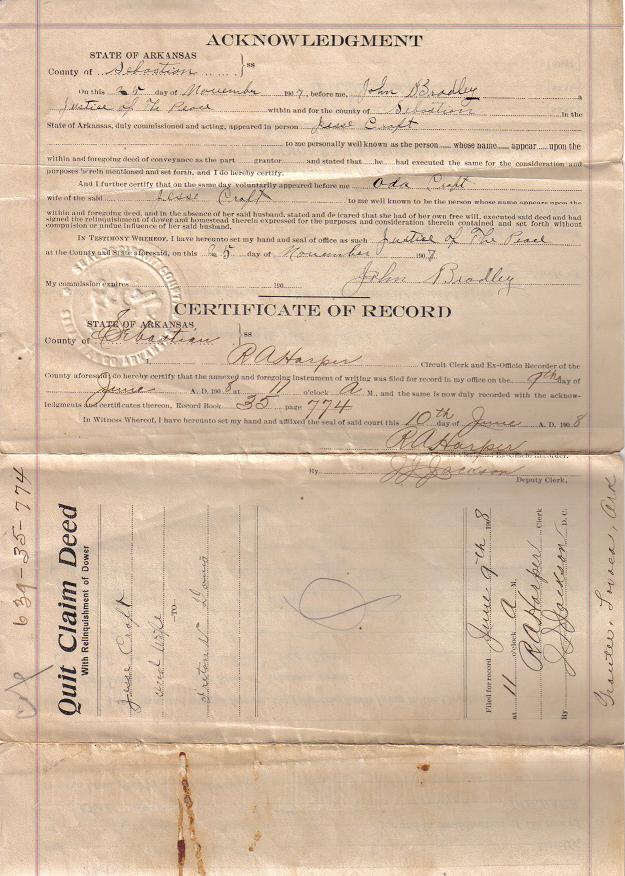 ACKNOWLEDGMENT
STATE OF ARKANSAS
County of Sebastian } ss
On this 25 day of November 1907, before me, John Bradley a
Justice of The Peace within and for the county of Sebastian in the
State of Arkansas, duly commissioned and acting, appeared in person Jesse Craft
to me personally well known as the person whose name appear upon the
within and foregoing deed of conveyance as the part grantor and stated that he had executed the same for the consideration and
purposes herein mentioned and set forth, and I do hereby certify.
And I further certify that on the same day voluntarily appeared before me Oda Craft
wife of the said Jesse Craft to me well known to be the person whose name appears upon the
within and foregoing deed, and in the absence of her said husband, stated and declared that she had of her own free will, executed said deed and had
signed the relinquishment of dower and homestead therein expressed for the purposes and consideration therein contained and set forth without
compulsion or undue influence of her said husband.
IN TESTIMONY WHEREOF, I have hereunto set my hand and seal of office as such Justice of The Peace
at the County and State aforesaid, on this 25 day of November 1907
John Bradley
My commission expires 190
CERTIFICATE OF RECORD
STATE OF ARKANSAS
County of Sebastian } ss
I, R A Harper Circuit Clerk and Ex-Officio Recorder of the
County aforesaid do hereby certify that the annexed and foregoing instrument of writing was filed for record in my office on the 9th day of
June A. D. 1908 at 11 o'clock A M., and the same is now duly recorded with the acknow-
ledgments and certificates thereon, Record Book 35 page 774
In Witness Whereof, I have hereunto set my hand and affixed the seal of said court this 10th day of June A. D. 1908
R A Harper
Circuit Clerk and Ex-Officio Recorder.
By J J Jackson
Deputy Clerk.
639-35-774
Quit Claim Deed
With Relinquishment of Dower
Jesse Craft
and Wife
—TO—
Filed for record June 9th 1908
at 11 o'clock A M.
R A Harper Clerk
By J J Jackson D. C.
Grantee, Lavaca, Ark